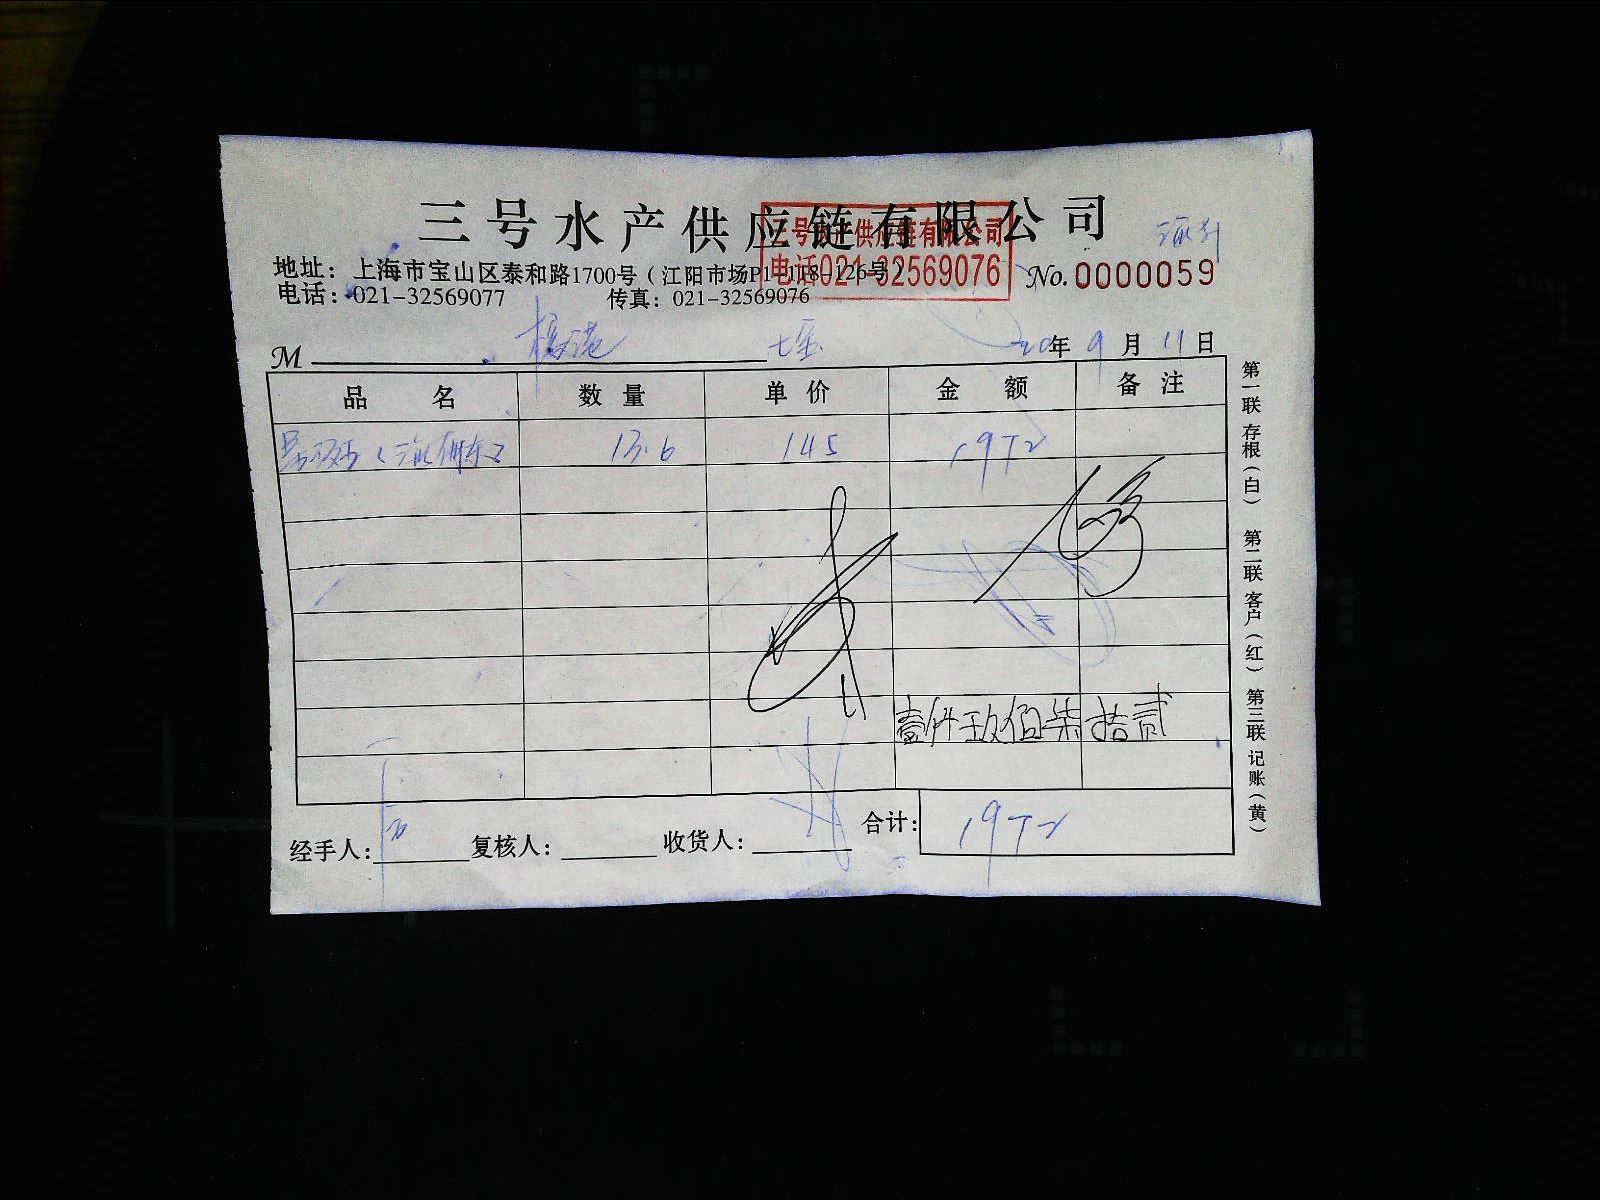 三号水产供应链有限公司
三号水产供应链有限公司
电话021-32569076
地址：上海市宝山区泰和路1700号（江阳市场P1-118-126号）
No.0000059
电话：021-32569077 传真：021-32569076
M 20年 9月 11日
品名 数量 单价 金额 备注
13.6 145 1972
壹仟玖佰柒拾贰
经手人： 复核人： 收货人： 合计： 1972
第一联 存根（白） 第二联 客户（红） 第三联 记账（黄）